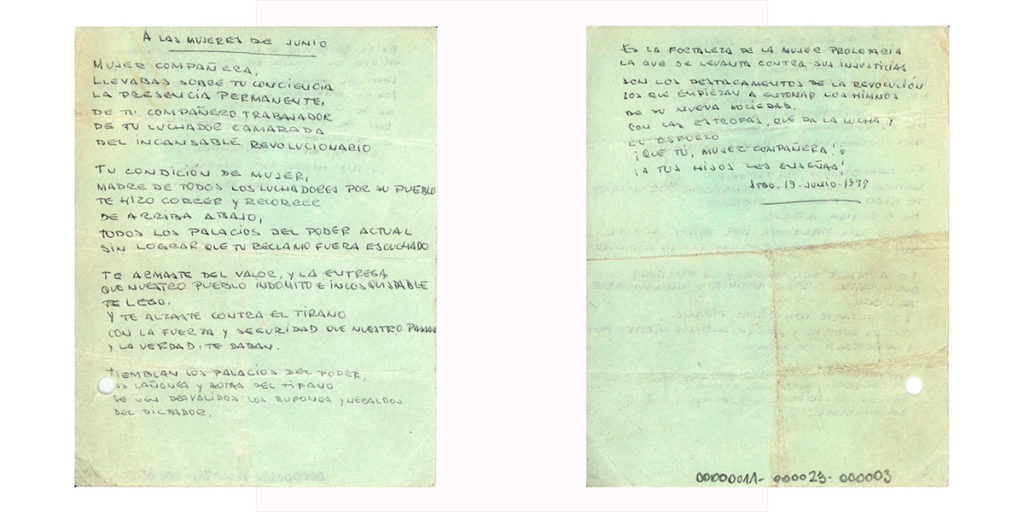 A LAS MUJERES DE JUNIO
MUJER COMPAÑERA,
LLEVABAS SOBRE TU CONCIENCIA
LA PRESENCIA PERMANENTE,
DE TU COMPAÑERO TRABAJADOR
DE TU LUCHADOR CAMARADA
DEL INCANSABLE REVOLUCIONARIO
TU CONDICIÓN DE MUJER,
MADRE DE TODOS LOS LUCHADORES POR SU PUEBLO
TE HIZO CORRER Y RECORRER
DE ARRIBA ABAJO,
TODOS LOS PALACIOS DEL PODER ACTUAL
SIN LOGRAR QUE TU RECLAMO FUERA ESCUCHADO
TE ARMASTE DEL VALOR, Y LA ENTREGA
QUE NUESTRO PUEBLO INDOMITO E INCOSQUISTABLE
TE LEGO.
Y TE ALZASTE CONTRA EL TIRANO
CON LA FUERZA Y SEGURIDAD QUE NUESTRO PASADO
Y LA VERDAD, TE DABAN.
TIEMBLAN LOS PALACIOS DEL PODER,
LOS CAÑONES Y BOTAS DEL TIRANO
SE VEN DESVALIDOS LOS BUFONES Y HERALDOS
DEL DICTADOR.
ES LA FORTALEZA DE LA MUJER PROLETARIA
LA QUE SE LEVANTA CONTRA SUS INJUSTICIAS
SON LOS DESTACAMENTOS DE LA REVOLUCIÓN
LOS QUE EMPIEZAN A ENTONAR LOS HIMNOS
DE SU NUEVA SOCIEDAD.
CON LAS ESTROFAS, QUE DA LA LUCHA Y
EL ESFUERZO
¡QUE TÚ, MUJER COMPAÑERA!
¡A TUS HIJOS LES ENSEÑAS!
STGO. 19-JUNIO-1977
00000011- 000023- 000003